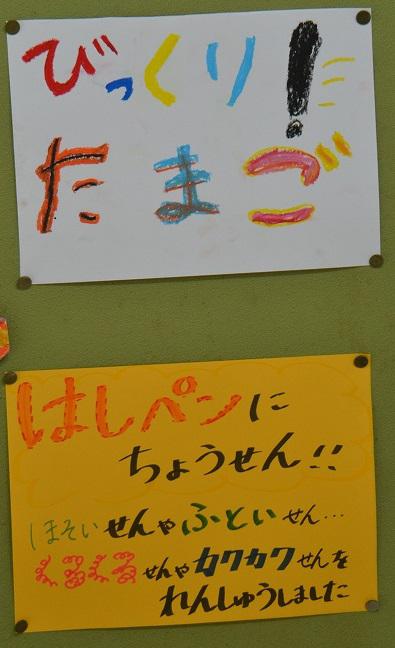 びっくり!
たまご
はしペンに
ちょうせん!!
ほそいせんやふといせん…
くるくるせんやカクカクせんを
れんしゅうしました